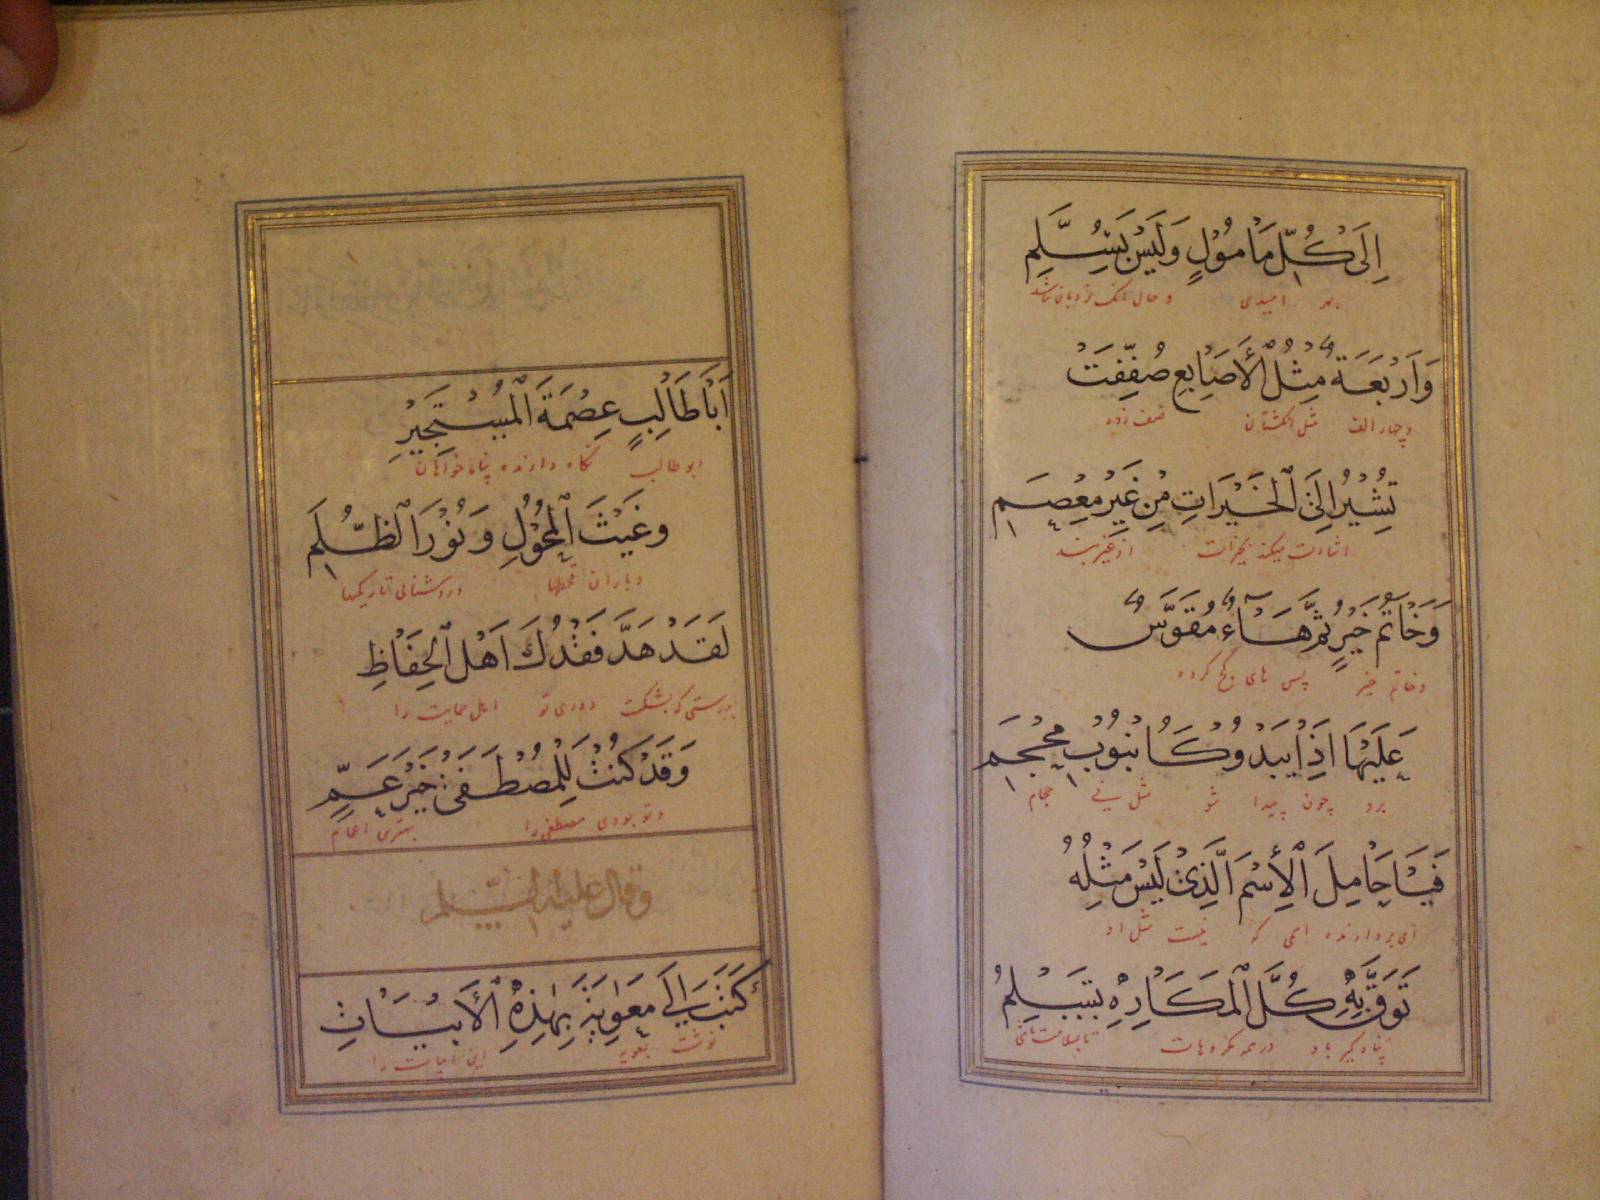 اِلَى كُلِّ مَاْمُوْلٍ وَلَيْسَ بِسُلَّمِ
بهر امیدی و حال آنک نردبان نباشد
وَاَرْبَعَةٌ مِثْلُ الْأَصَابِعِ صُفِّفَتْ
و چهار الف مثل انگشتان صف زده
تُشِيْرُ اِلَى الْخَيْرَاتِ مِنْ غَيْرِ مِعْصَمِ
اشارت میکند بخیرات از غیر بند
وَخَاتَمُ خَيْرٍ ثُمَّ هَاءٌ مُقَوَّسٌ
و خاتم خیر پس های کج کرده
عَلَيْهَا اِذَا يَبْدُو كَاُنْبُوْبِ مِحْجَمِ
برو چون پیدا شو مثل نی حجام
فَيَا حَامِلَ الْأِسْمِ الَّذِيْ لَيْسَ مِثْلُهُ
ای بردارنده اسمی که نیست مثل او
تَوَقَّ بِهِ كُلَّ الْمَكَارِهِ تَسْلِمُ
پناه گیر باو در همه مکروهات تا بسلامت باشی
اَبَا طَالِبٍ عِصْمَةَ الْمُسْتَجِيْرِ
ابو طالب نگاه دارنده پناه خواهان
وَغَيْثَ الْمُحُوْلِ وَنُوْرَ الظُّلَمِ
و باران قحطها و روشنائی تاریکیها
لَقَدْ هَدَّ فَقْدُكَ اَهْلَ الْحِفَاظِ
بدرستی که بشکست دوری تو اهل حمایت را
وَقَدْ كُنْتَ لِلْمُصْطَفَى خَيْرَ عَمٍّ
و تو بودی مصطفی را بهترین اعمام
وقال عليه السلام
كَتَبَ اِلَى مُعَاوِيَةَ بِهٰذِهِ الْأَبْيَاتِ
نوشت بمعویه این ابیات را